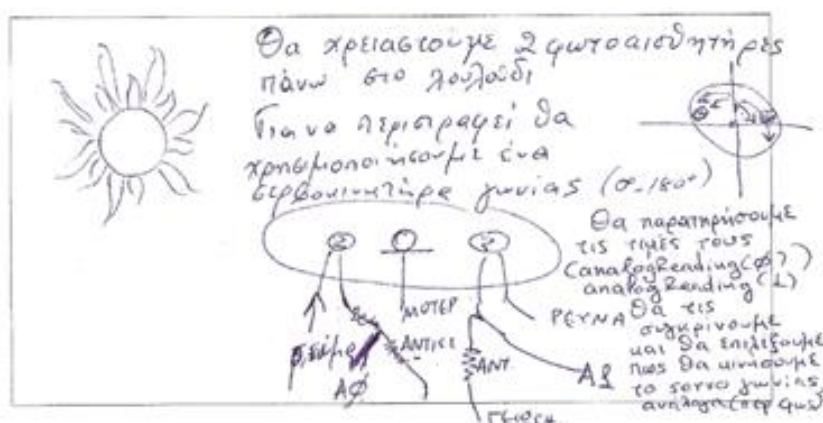 Θα χρειαστούμε 2 φωτοαισθητήρες
πάνω στο λουλούδι
Για να περιστραφεί θα
χρησιμοποιήσουμε ένα
σερβοκινητήρα γωνίας (0-180°)
Θα παρατηρήσουμε
τις τιμές τους
(analogReading(φ)
analogReading(1)
Θα τις
συγκρίνουμε
και θα επιλέξουμε
πως θα κινήσουμε
το γωνίας
ανάλογα
ΜΟΤΕΡ
ΡΕΥΜΑ
ΑΝΤΙΣΤ
ΑΝΤ.
Αφ
Α1